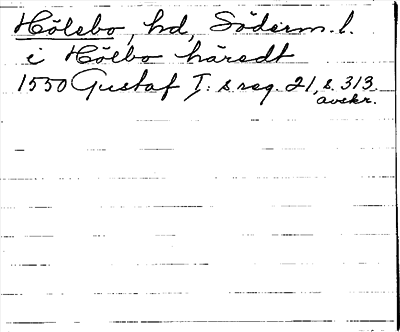 Hölebo, hd, Söderm. l.
i Hölbo häredt
1550 Gustaf I: s reg. 21, s. 313
avskr.